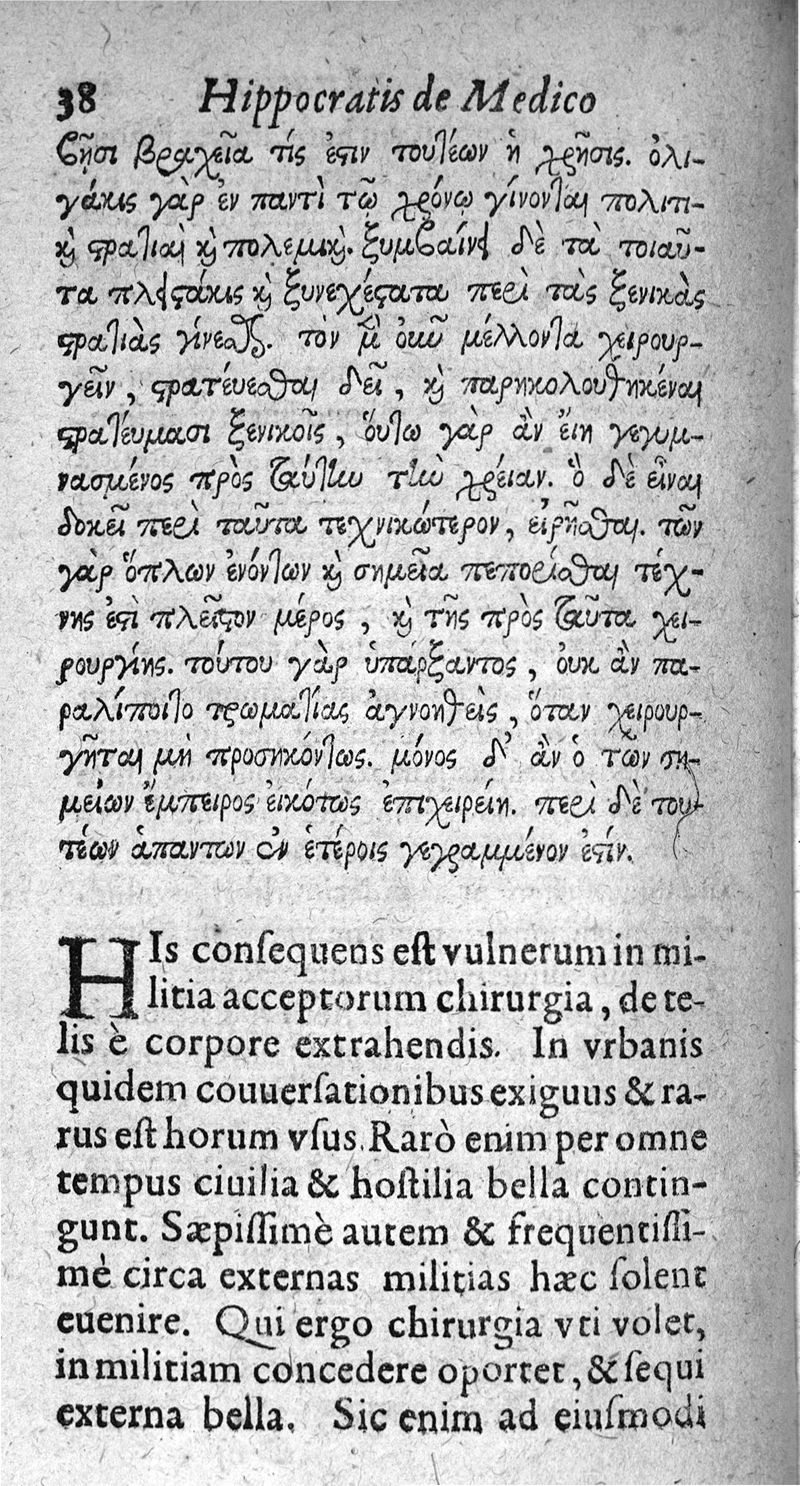 38 Hippocratis de Medico
βῆσι βραχεῖα τίς ἐστιν τουτέων ἡ χρῆσις. ὀλι-
γάκις γὰρ ἐν παντὶ τῷ χρόνῳ γίνονται πολιτι-
καὶ στρατιαὶ καὶ πολεμικαὶ. ξυμβαίνει δὲ τὰ τοιαῦ-
τα πλειστάκις καὶ ξυνεχέστατα περὶ τὰς ξενικὰς
στρατιὰς γίνεσθαι. τὸν μὲν οὖν μέλλοντα χειρουρ-
γεῖν, στρατέυεσθαι δεῖ, καὶ παρηκολουθηκέναι
στρατέυμασι ξενικοῖς, ὅυτω γὰρ ἂν ἔιη γεγυμ-
νασμένος πρὸς ταύτην τὴν χρέιαν. ὃ δὲ εἶναι
δοκεῖ περὶ ταῦτα τεχνικώτερον, εἰρῆσθαι. τῶν
γὰρ ὅπλων ἐνόντων καὶ σημεῖα πεπορίσθαι τέχ-
νης ἐστὶ πλεῖστον μέρος, καὶ τῆς πρὸς ταῦτα χει-
ρουργίης. τούτου γὰρ ὑπάρξαντος, ουκ ἂν πα-
ραλίποιτο τρωματίας ἀγνοηθεὶς, ὅταν χειρουρ-
γῆται μὴ προσηκόντως. μόνος δ' ἂν ὁ τῶν ση-
μείων ἔμπειρος εἰκότως ἐπιχειρείη. περὶ δὲ του-
τέων ἁπαντων ἐν ἑτέροις γεγραμμένον ἐστίν.
HIs conſequens eſt vulnerum in mi-
litia acceptorum chirurgia, de te-
lis è corpore extrahendis. In vrbanis
quidem couuerſationibus exiguus & ra-
rus eſt horum vſus. Rarò enim per omne
tempus ciuilia & hoſtilia bella contin-
gunt. Sæpiſſimè autem & frequentiſſi-
mè circa externas militias hæc ſolent
euenire. Qui ergo chirurgia vti volet,
in militiam concedere oportet, & ſequi
externa bella. Sic enim ad eiuſmodi